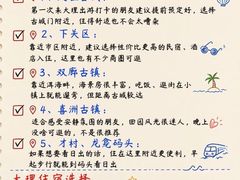 第一次来大理出游打卡的朋友建议提前预定好，选择
古城门附近，住得舒适也不会太嘈杂
2、下关区：
靠近市区附近，建议选择性价比更高的民宿，酒
店入住，这里也有不少商圈可逛
3、双廊古镇：
靠近洱海畔，海景很丰富，吃饭、逛街在小
镇上就能逛，但距离古城较远
4、喜洲古镇：
适合感受安静氛围的朋友，田园风光很迷人，晚上
没啥可逛的，不是很推荐
5、才村、龙龛码头：
如果想要看日出的话，住在这附近更便利，早
起步行就能到码头看日出
大理住宿选择